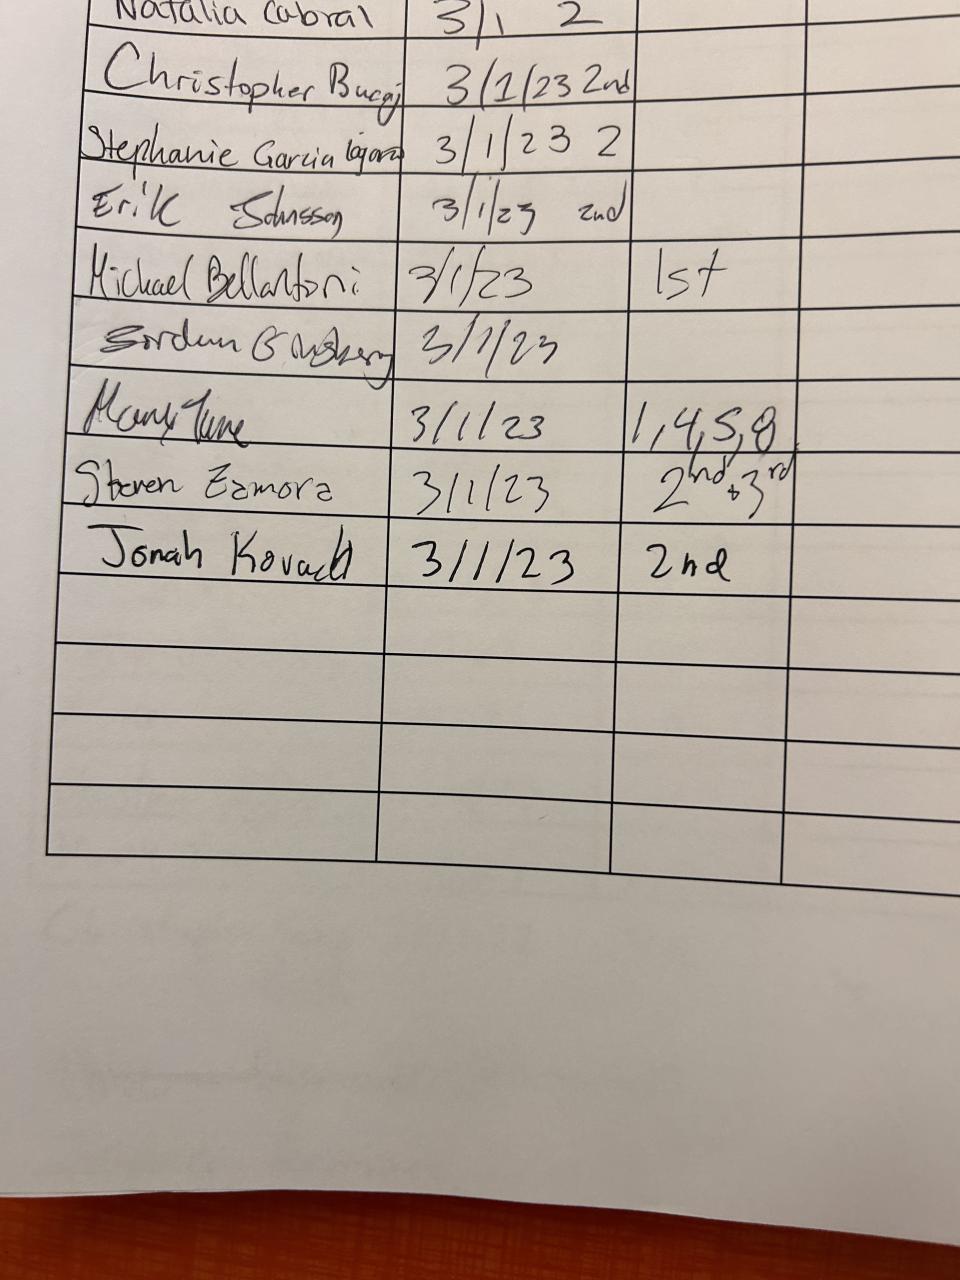 Natalia Cabral 3/1 2
Christopher Bucaj 3/1/23 2nd
Stephanie Garcia 3/1/23 2
Erik Johnsson 3/1/23 2nd
Michael Bellantoni 3/1/23 1st
3/1/23
3/1/23 1,4,5,8
Steven Zamora 3/1/23 2nd + 3rd
Jonah Kovach 3/1/23 2nd